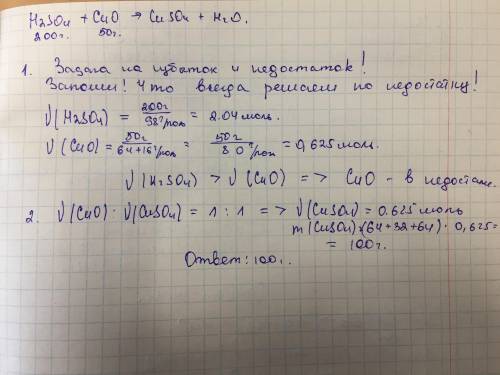 H₂SO₄ + CuO → CuSO₄ + H₂O.
200г. 50г.
1. Задача на избыток и недостаток!
Запомни! Что всегда решаем по недостатку!
ν(H₂SO₄) = 200г / 98 г/моль = 2.04 моль.
ν(CuO) = 50г / 64+16 г/моль = 50г / 80 г/моль = 0,625 моль.
ν(H₂SO₄) > ν(CuO) => CuO - в недостатке.
2. ν(CuO) : ν(CuSO₄) = 1 : 1 => ν(CuSO₄) = 0.625 моль
m(CuSO₄) = (64+32+64) · 0,625 =
= 100г.
Ответ: 100г.